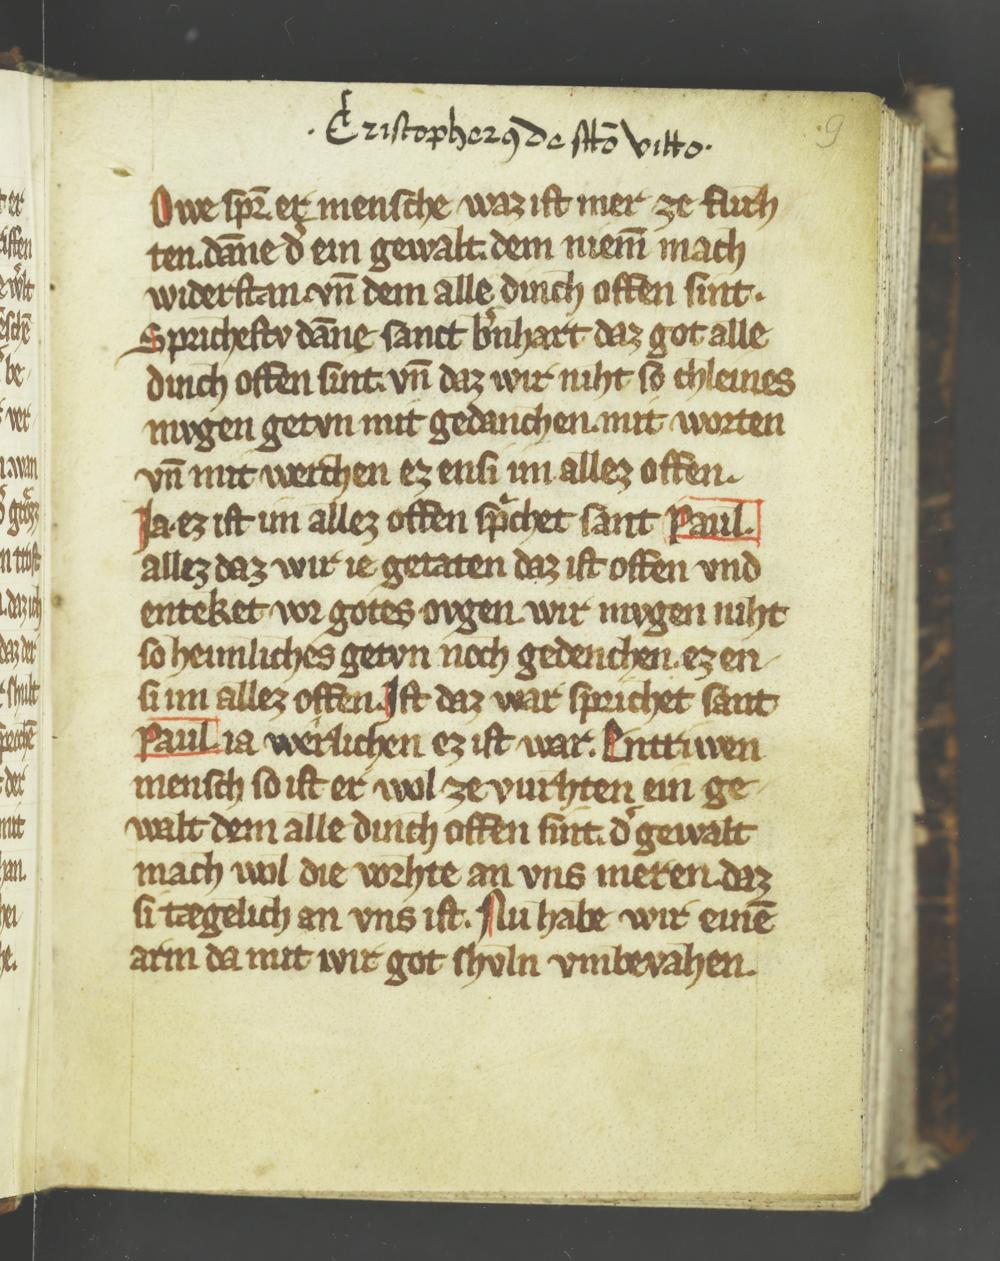 · Cristopherꝰ de sctō vitto · 9
Owe spr̄. er mensche waz ist mer ze furh
ten. dāne d̾ ein gewalt. dem niem̄ mach
widerstan. vn̄ dem alle dinch offen sint.
Sprichestv dāne sanct b̾nhart daz got alle
dinch offen sint. vn̄ daz wir niht so chleines
mvgen getvn mit gedanchen. mit worten
vn̄ mit werchen ez ensi im allez offen.
Ja. ez ist im allez offen sp̾chet sant Paul.
allez daz wir ie getaten daz ist offen vnd
enteket vor gotes ovgen. wir mvgen niht
so heimliches getvn noch gedenchen. ez en
si im allez offen. Ist daz war sprichet sant
Paul ia werlichen ez ist war. Entriwen
mensch so ist er wol ze vurhten ein ge
walt dem alle dinch offen sint. d̾ gewalt
mach wol die vorhte an vns meren. daz
si tægelich an vns ist. Nu habe wir einē
arm da mit wir got shvln vmbevahen.